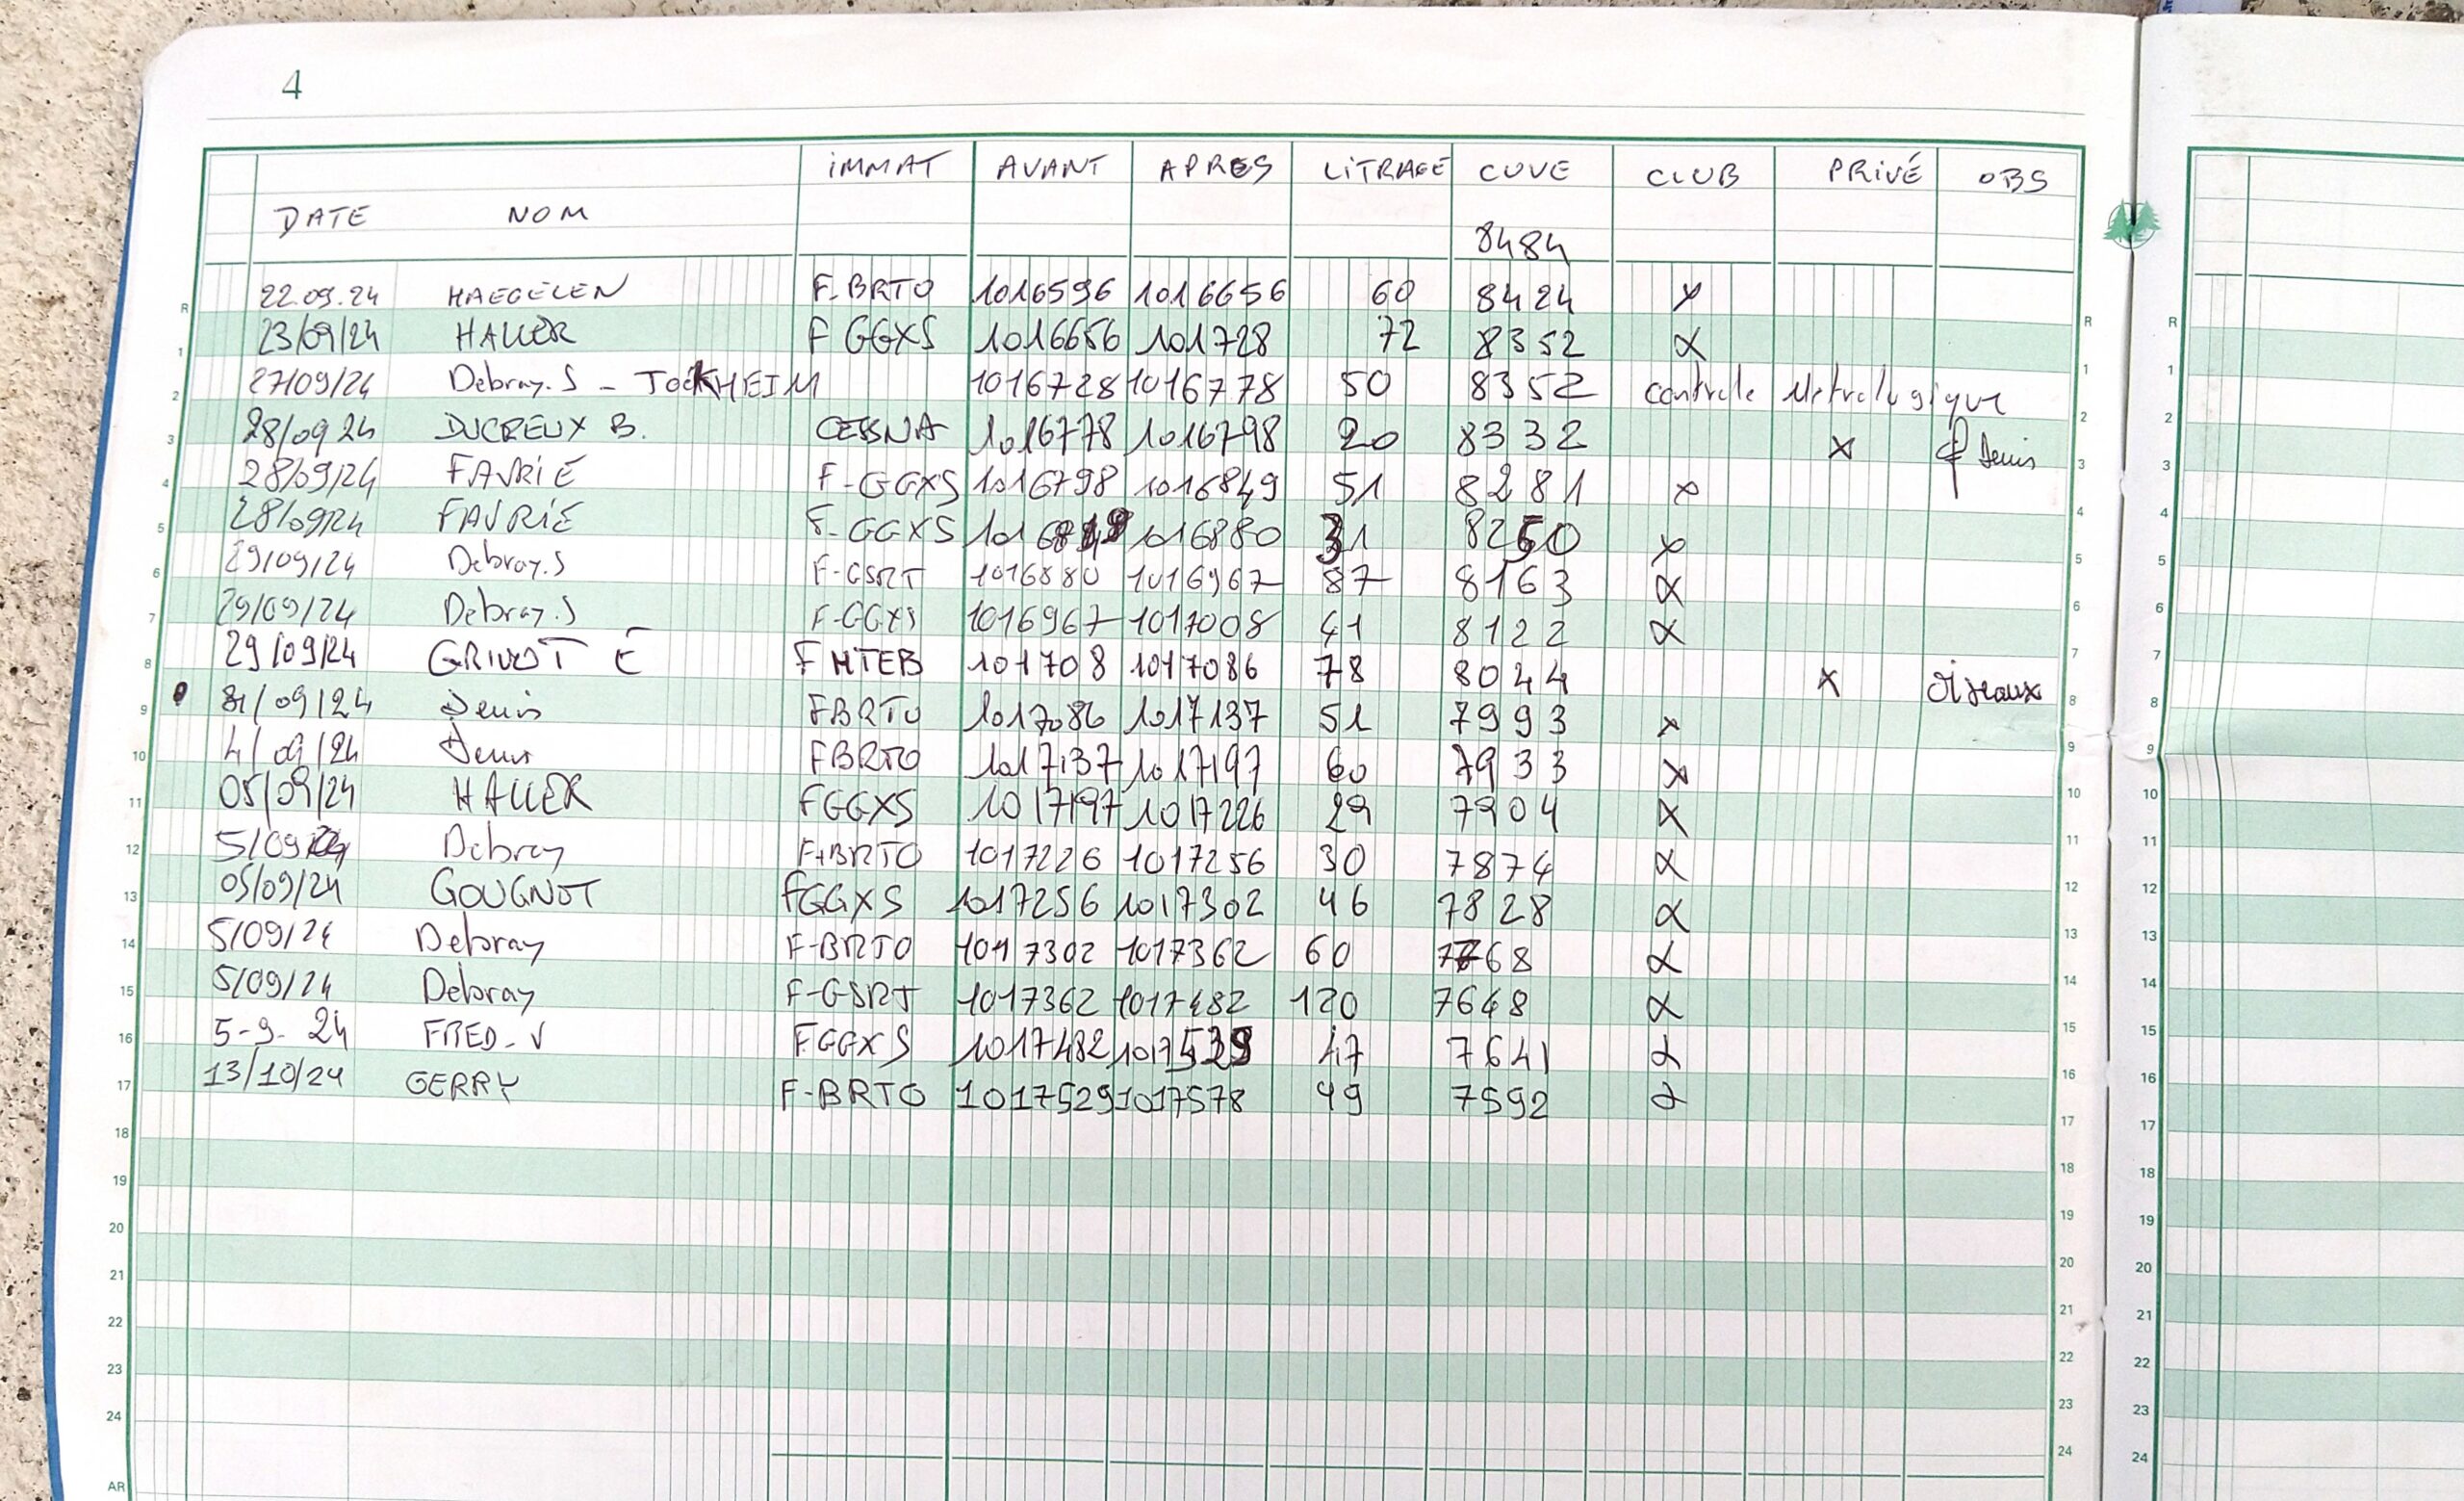 4
IMMAT AVANT APRES LITRAGE CUVE CLUB PRIVÉ OBS
DATE NOM
8484
22.09.24 HAEGELEN F.BRTO 1016596 1016656 60 8424 x
R R R
23/09/24 HALLER F GGXS 1016656 101728 72 8352 x
1 1 1
27/09/24 Debray.S - TOCKHEIM 1016728 1016778 50 8352 controle Métrologique
2 2 2
28/09 24 DUCREUX B. CESSNA 1016778 1016798 20 8332 x Denis
3 3 3
28/09/24 FAVRIE F-GGXS 1016798 1016849 51 8281 x
4 4 4
28/09/24 FAVRIE F-GGXS 1016849 1016880 31 8250 x
5 5 5
29/09/24 Debray.S F-GSRT 1016880 1016967 87 8163 x
6 6 6
29/09/24 Debray.S F-GGXS 1016967 1017008 41 8122 x
7 7 7
29/09/24 GRIVOT E F HTEB 101708 1017086 78 8044 x Oiseaux
8 8 8
/09/24 Denis FBRTO 1017086 1017137 51 7993 x
9 9 9
4/09/24 Denis FBRTO 1017137 1017197 60 7933 x
10 10 10
05/09/24 HALLER FGGXS 1017197 1017226 29 7904 x
11 11 11
5/09/24 Debray F-BRTO 1017226 1017256 30 7874 x
12 12 12
05/09/24 GOUGNOT FGGXS 1017256 1017302 46 7828 x
13 13 13
5/09/24 Debray F-BRTO 1017302 1017362 60 7768 x
14 14 14
5/09/24 Debray F-GSRT 1017362 1017482 120 7648 x
15 15 15
5-9-24 FRED-V FGGXS 1017482 1017529 47 7641 x
16 16 16
13/10/24 GERRY F-BRTO 1017529 1017578 49 7592 x
17 17 17
18 18 18
19 19 19
20 20 20
21 21 21
22 22 22
23 23 23
24 24 24
AR